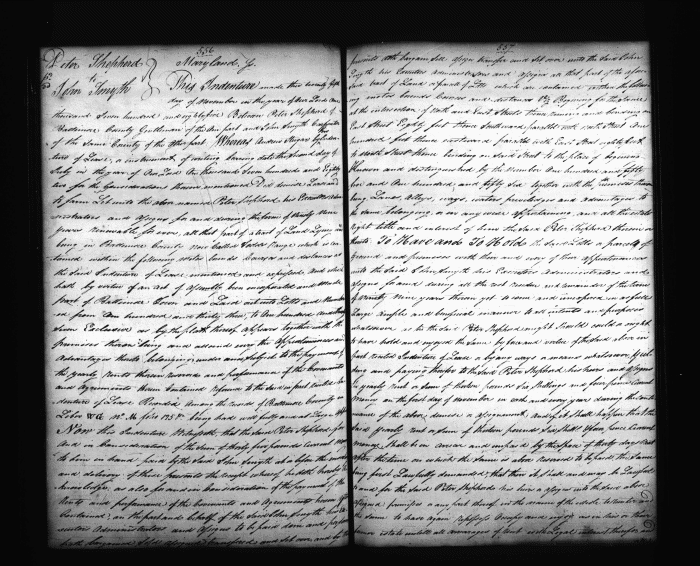 556
Peter Shepherd
to
John Smyth
Maryland
This Indenture made this twenty
day of November in the year of our Lord One
thousand Seven hundred and eighty five Between Peter Shepherd of
Baltimore County Gentleman of the One part and John Smyth
of the Same County of the other part Whereas Andrew
of Lease, or instrument of writing bearing date the second day of
July in the year of our Lord One thousand Seven hundred and Eighty
for the Consideration therein mentioned Did demise Lease and
to farm Let unto the above named Peter Shepherd, his Executors
and assigns for and during the term of Ninety Nine
years renewable for ever, all that part of a tract of Land Lying and
being in Baltimore County now Called
within the following metes bounds Courses and distances as
the said Indenture of Lease mentioned and expressed And which
hath by virtue of an act of assembly been incorporated and
part of Baltimore Town and Laid out into Lotts and
from One hundred and thirty
Exclusive as by the plott thereof appears together with the
premises thereon being and
Advantages thereto belonging under and subject to the payment of
the yearly Rents therein reserved and performance of the Covenants
and agreements therein contained reference to the said in part recited
of Lease Recorded Among the records of Baltimore County in
Liber WG No. M folio 175 &c being had will fully and at Large appear
Now this Indenture Witnesseth, that the said Peter Shepherd for
And in Consideration of the sum of thirty five pounds current money
to him in hand paid by the said John Smyth at or before the sealing
and delivery of these presents the receipt whereof he doth hereby
acknowledge, as also for and in Consideration of the payment of the
Rents and performance of the Covenants and Agreements herein after
Contained, on the part and behalf of the said John Smyth his
Administrators and assigns to be paid done and performed
hath bargained Sold Assigned transferred and set over and by these
557
presents doth bargain Sell assign transfer and Set over unto the said John
Smyth his Executors Administrators and assigns all that part of the
tract of Land or part of Lott which is contained within the following
metes bounds Courses and distances Viz Beginning for the same
at the intersection of and East Street thence running and binding on
East Street Eighty feet thence Southward parallel with Street One
hundred feet thence westward parallel with East Street eighty feet
to Street thence binding on said Street to the place of beginning
Known and distinguished by the Number One hundred and fifty
and One hundred and fifty Six together with the premises thereon
being Lanes, Alleys, ways, waters privileges and advantages to
the same belonging, or in any wise appertaining, and all the estate
right title and interest of him the said Peter Shepherd therein or
thereto To Have and To Hold the said Lotts or parcels of
Ground and premises with them and every of their appurtenances
unto the said John Smyth his Executors Administrators and
Assigns for and during all the rest residue and remainder of the term
of Ninety Nine years therein yet to come and unexpired in as full
Large Ample and beneficial manner to all intents and purposes
whatsoever as he the said Peter Shepherd might should could or ought
to have held and enjoyed the same by force and virtue of the said above in
part recited Indenture of Lease or by any ways or means whatsoever
and paying therefor to the said Peter Shepherd his heirs and assigns
yearly rent or sum of thirteen pounds Six Shillings and four pence Current
Money on the first day of November in each and every year during the
of the above, demise or assignment, And if it shall happen that the
said yearly rent or sum of thirteen pounds Six Shill four pence Current
money Shall be in arrear and unpaid by the space of thirty days next
after the time on which the same is above reserved to be paid, the same
being first Lawfully demanded, that then it Shall and may be Lawful
to and for the said Peter Shepherd his heirs or assigns into the said above
assigned premises or any part thereof in the name of the whole to Reenter and
the same to have again repossess Occupy and enjoy as in his or their
former estate untill all arrearages of rent with Legal interest thereon